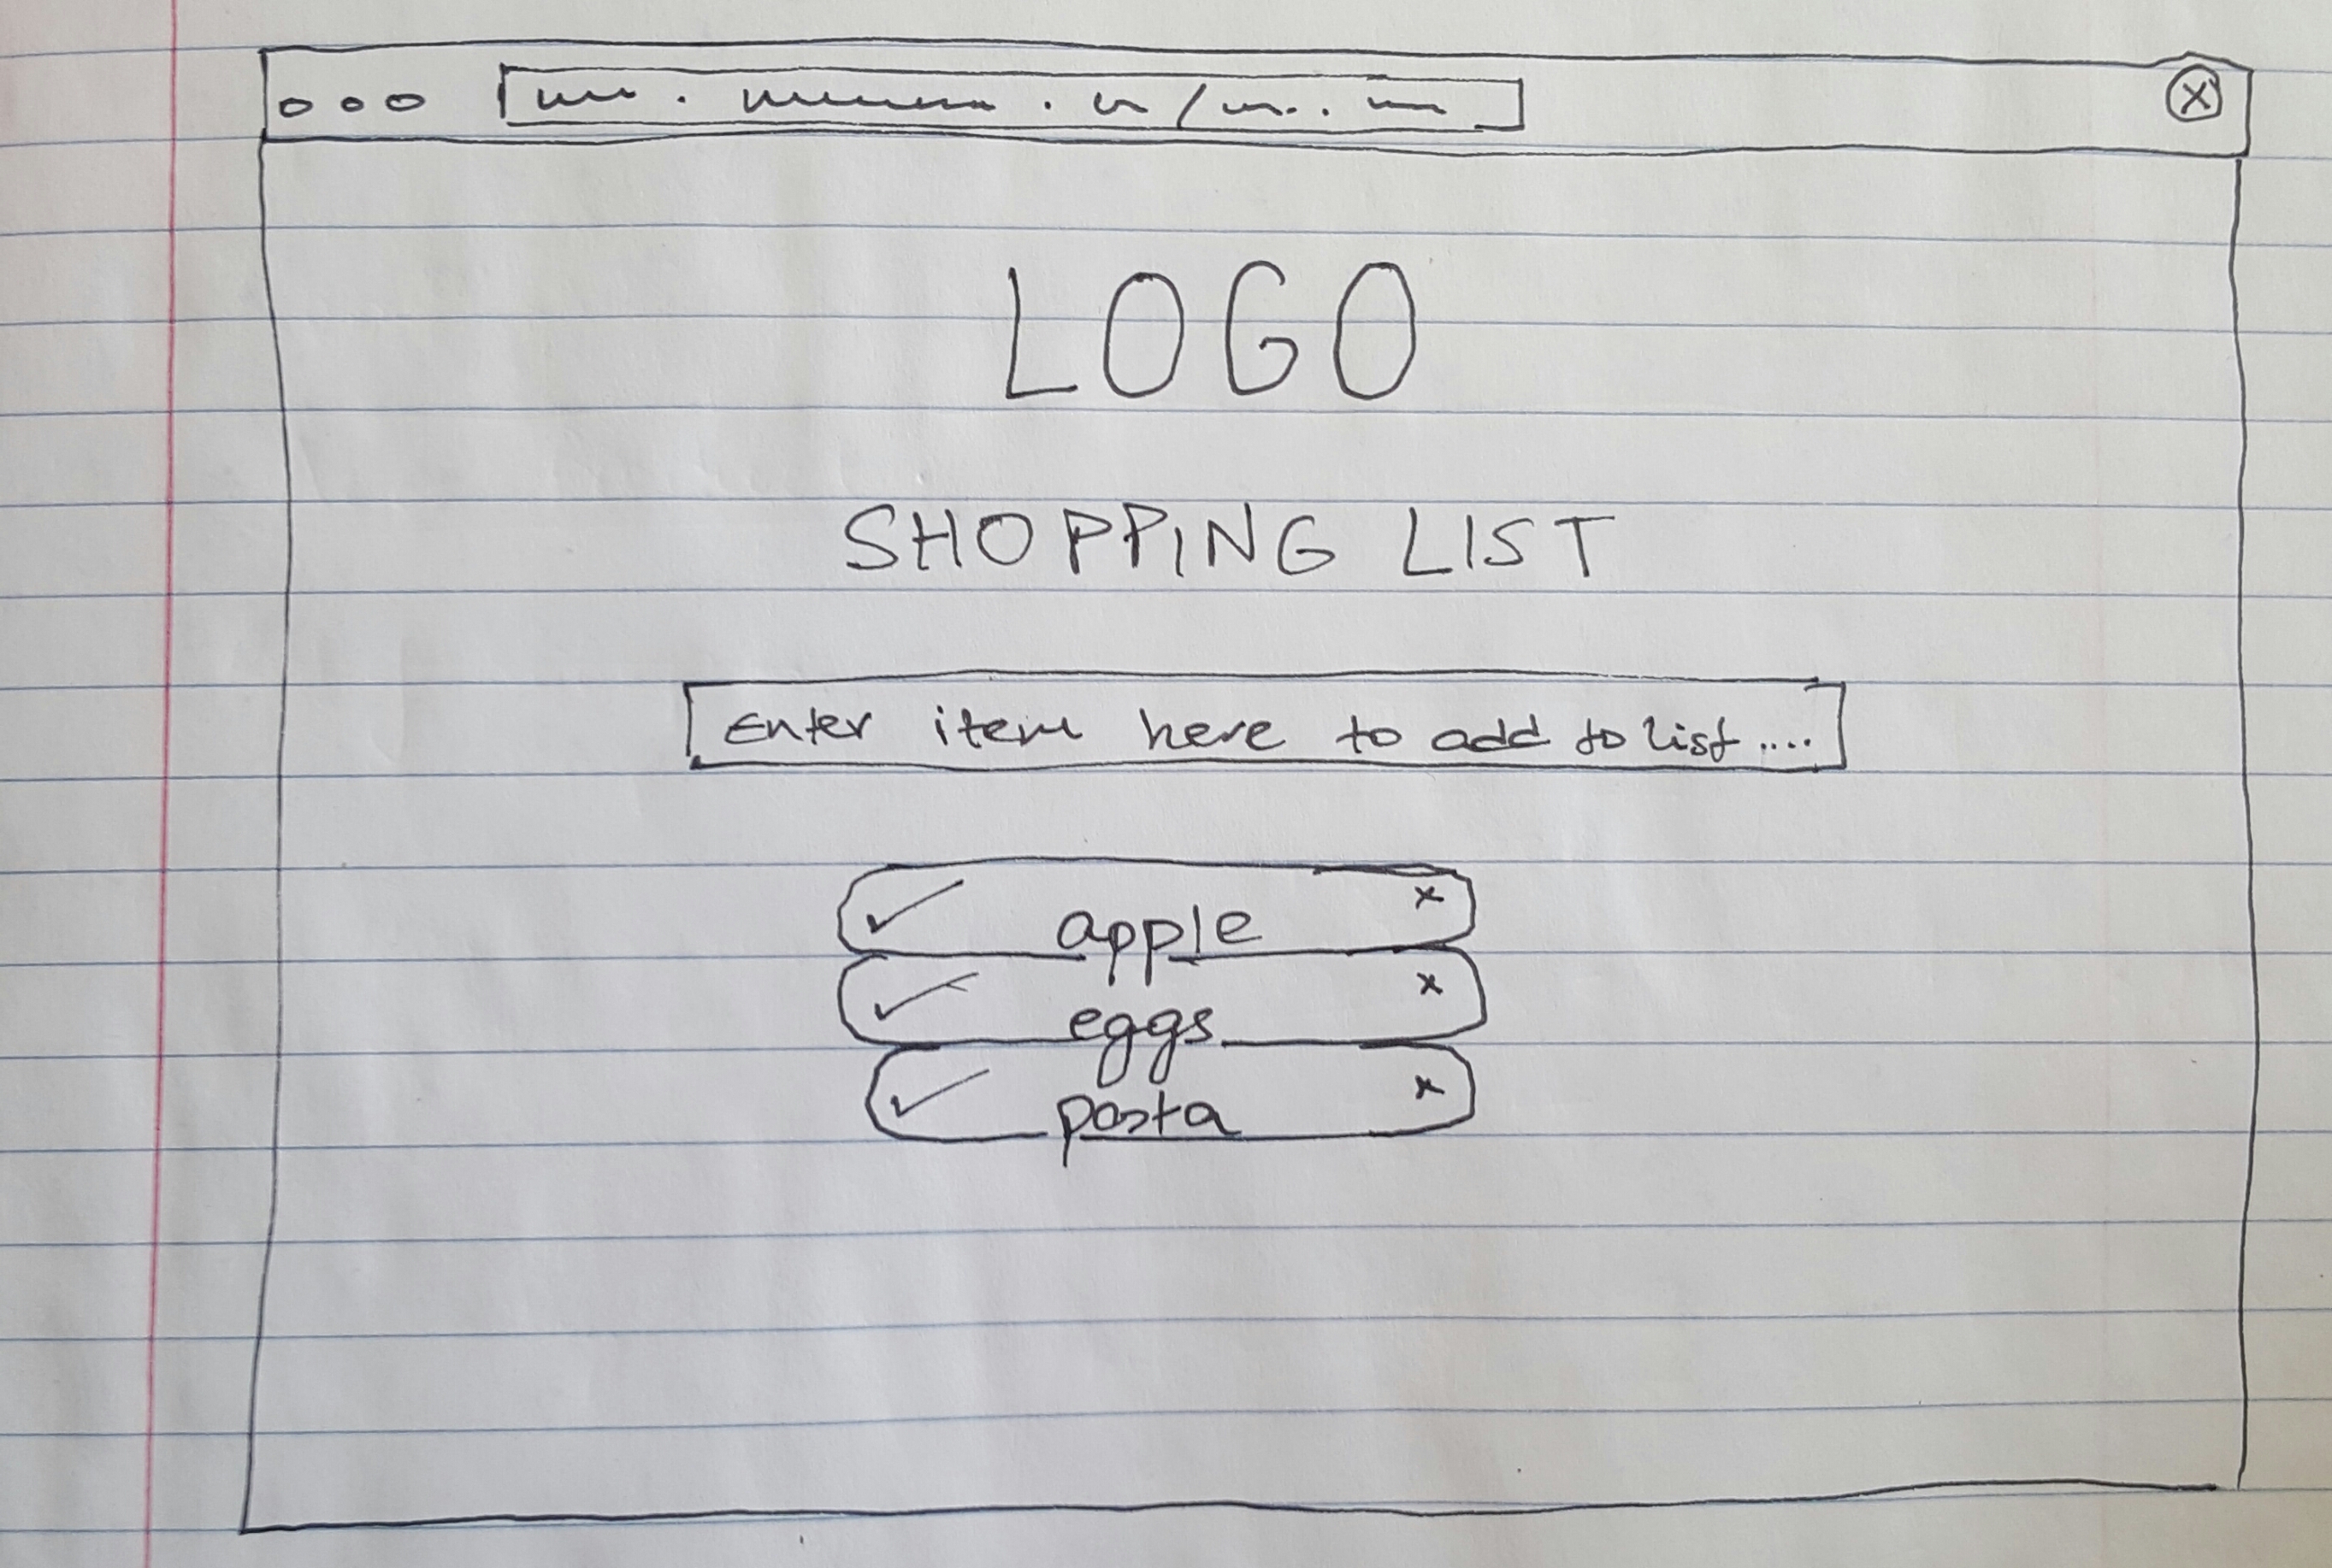 LOGO
SHOPPING LIST
Enter item here to add to list....
apple x
eggs x
pasta x